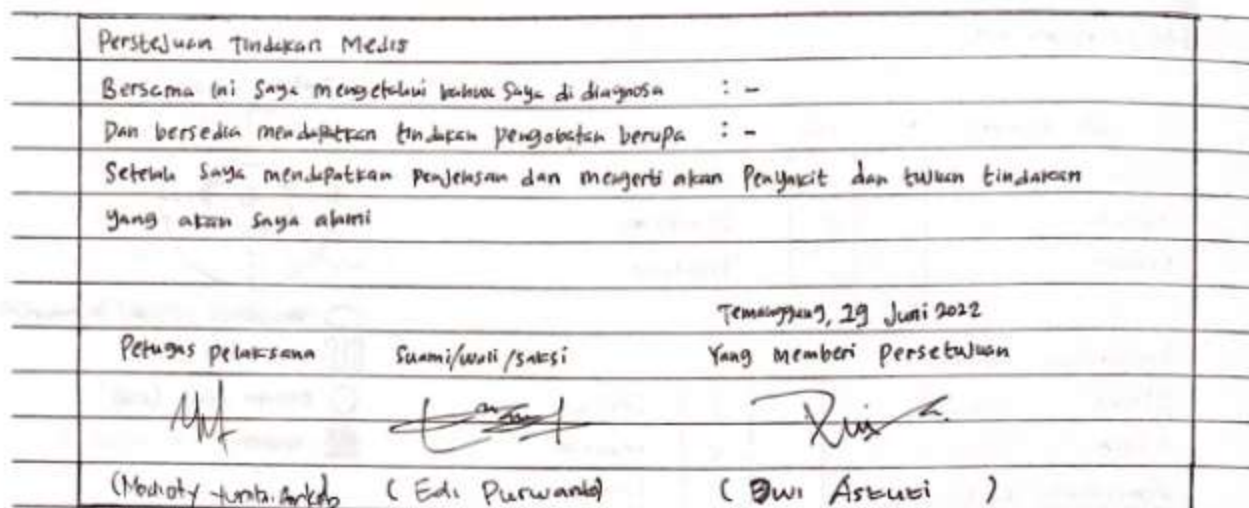 Perstejuan Tindakan Medis
Bersama ini Saya mengetahui bahwa Saya di diagnosa : -
Dan bersedia mendapatkan tindakan pengobatan berupa : -
Setelah Saya mendapatkan penjelasan dan mengerti akan Penyakit dan tujuan tindakan
yang akan Saya alami
Temanggung, 29 Juni 2022
Petugas pelaksana Suami/wali/saksi Yang memberi persetujuan
( Edi Purwanto) ( Dwi Astuti )